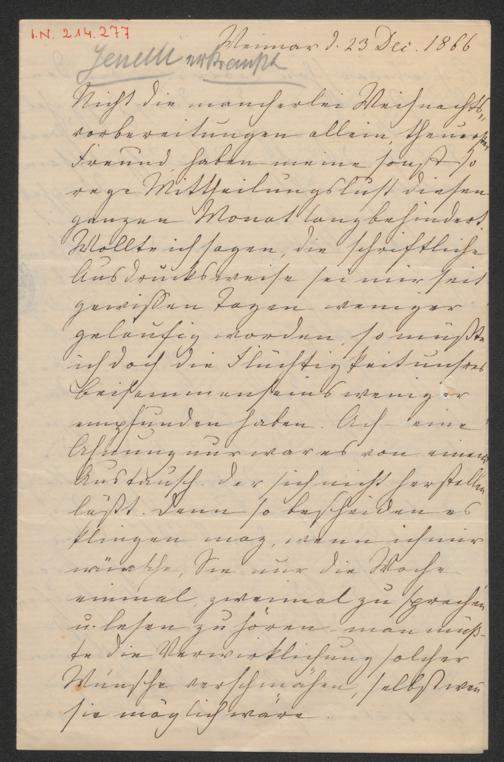 I.N. 214.277
Weimar d. 23 Dec. 1866
Genelli erkrankt
Nicht die mancherlei Weihnachts-
vorbereitungen allein, theuerster
Freund haben meine sonst so
rege Mittheilungslust diesen
ganzen Monat lang behindert.
Wollte ich sagen, die schriftliche
Ausdrucksweise sei mir seit
gewissen Tagen weniger
geläufig worden, so müßte
ich doch die Flüchtigkeit unsres
Beisammenseins weniger
empfunden haben. Ach eine
Ahnung nur war es von einem
Austausch der sich nicht herstellen
läßt. Denn so bescheiden es
klingen mag, wenn ich mir
wünsche, Sie nur die Woche
einmal, zweimal zu sprechen
u. lesen zu hören – man müß-
te die Verwirklichung solcher
Wünsche verschmähen, selbst wenn
sie möglich wäre.